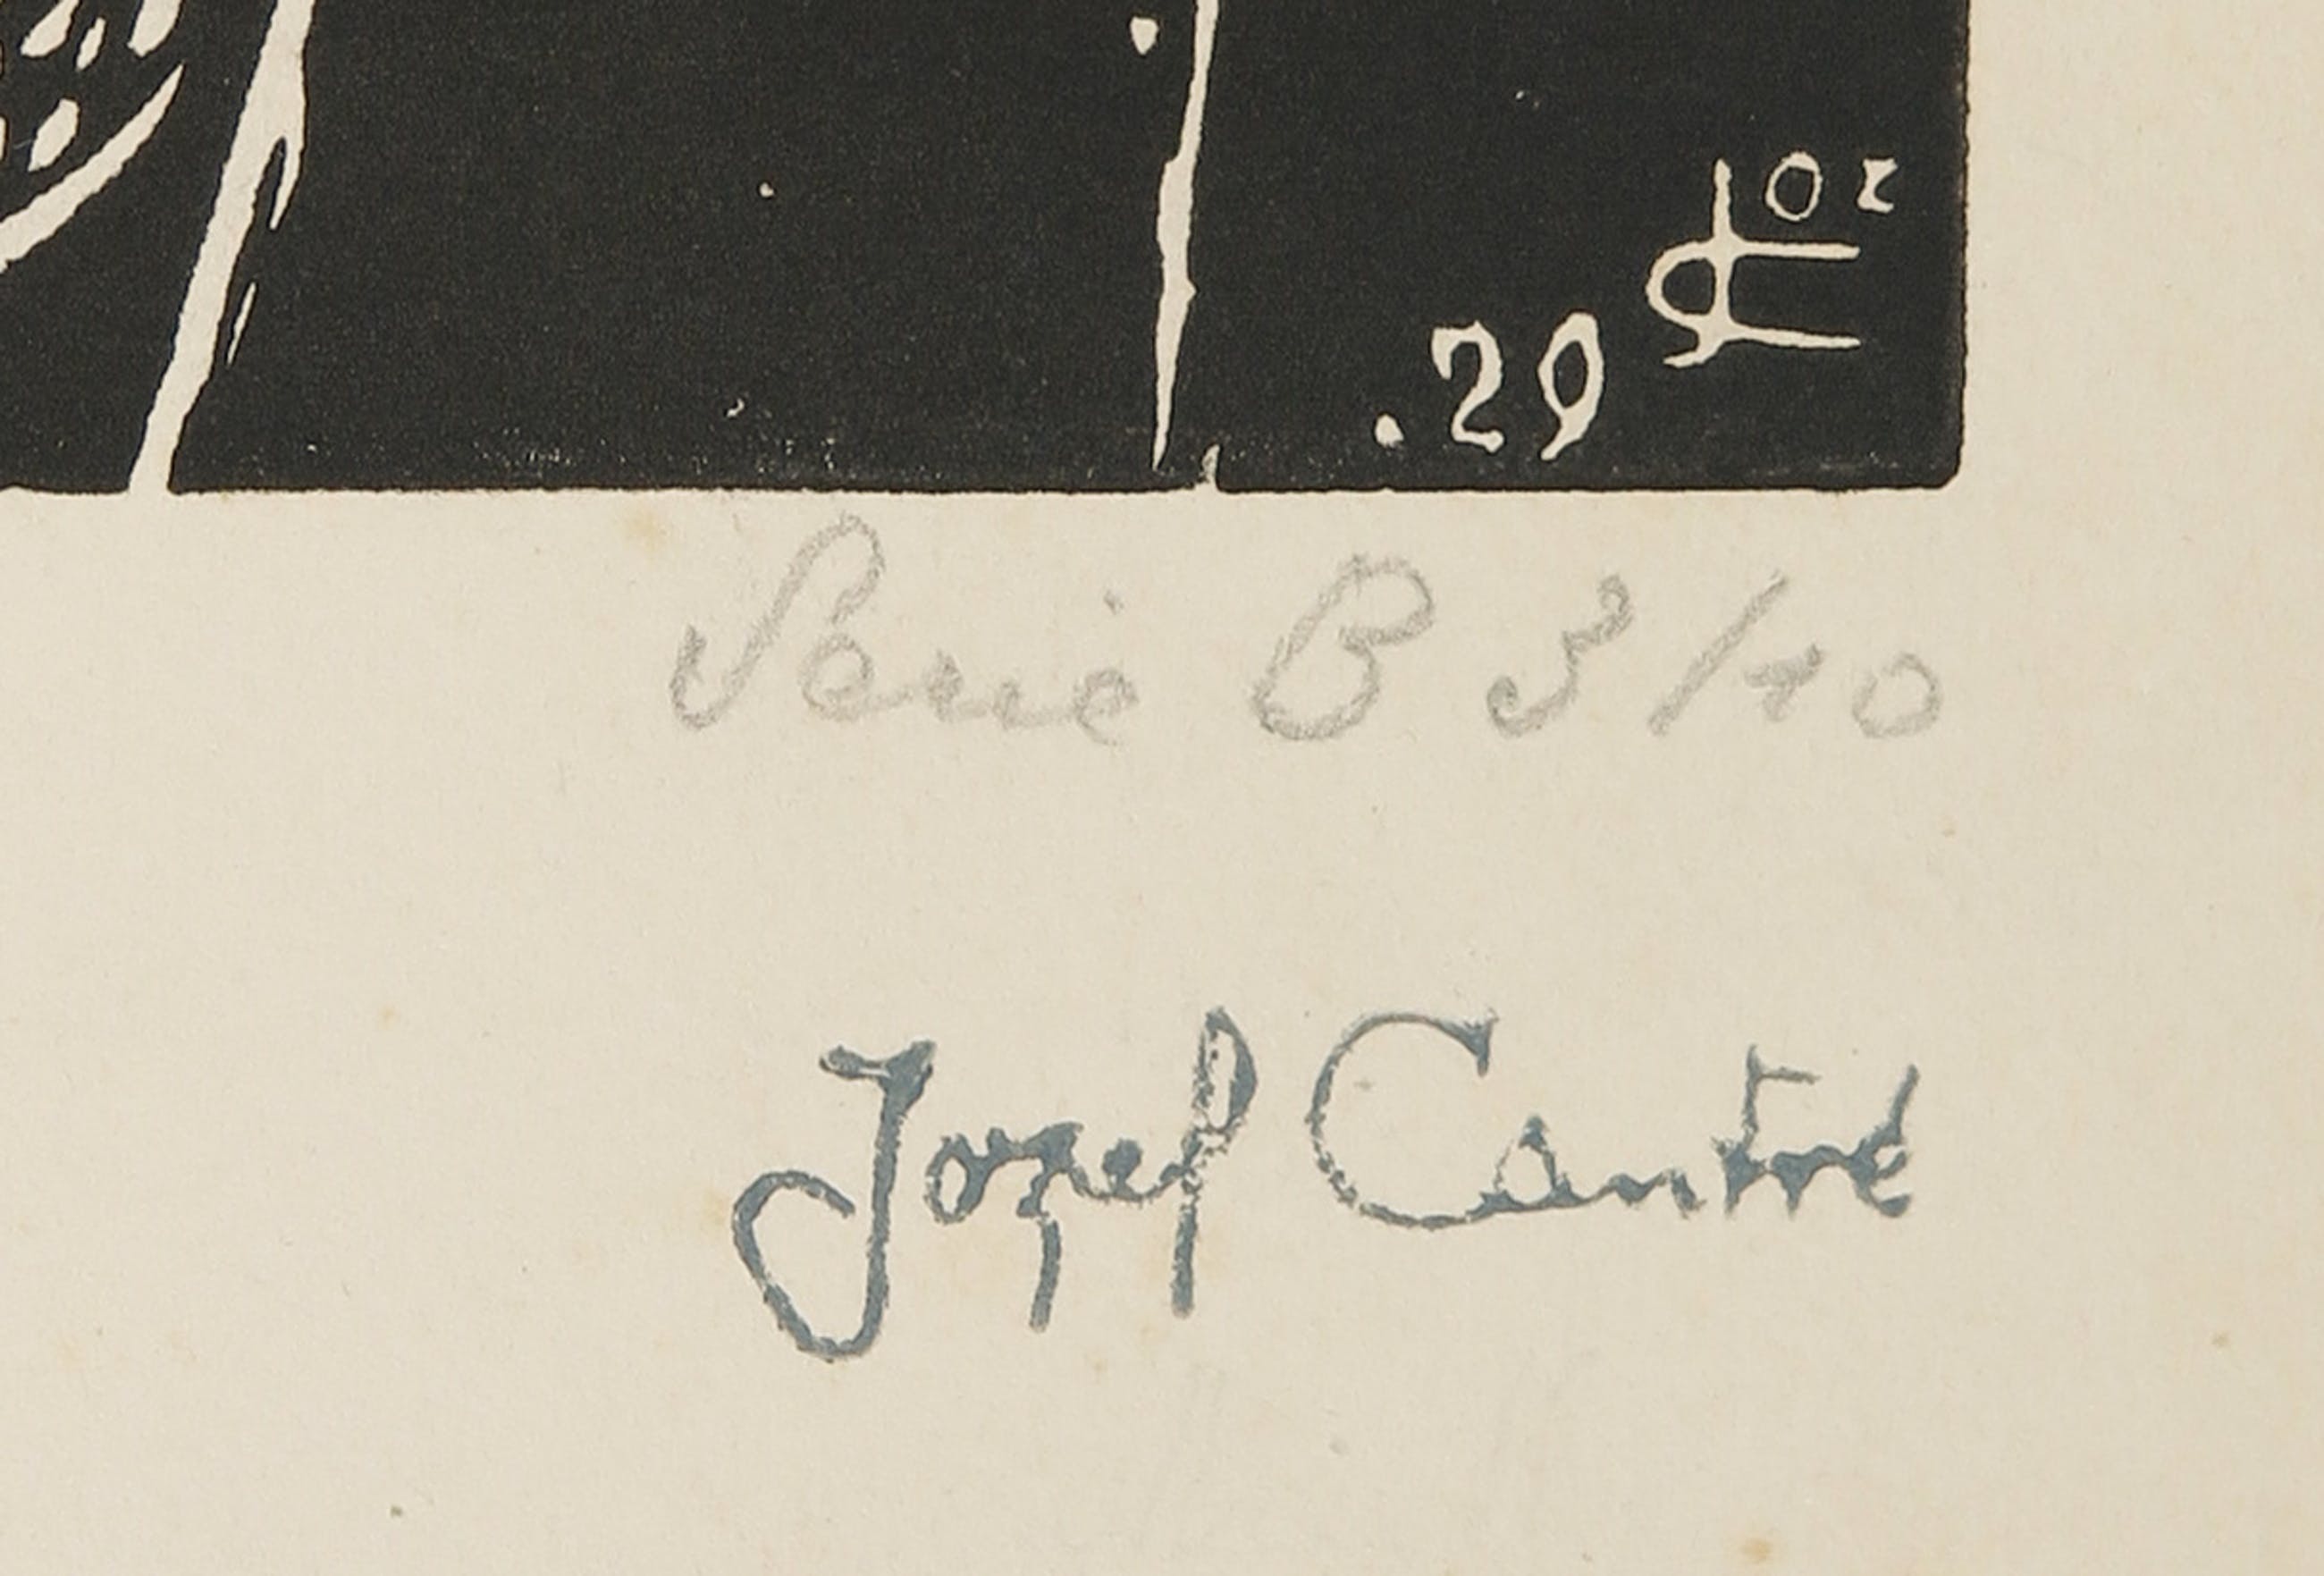 oz
.29
Serie B 3/10
Jozef Cantré